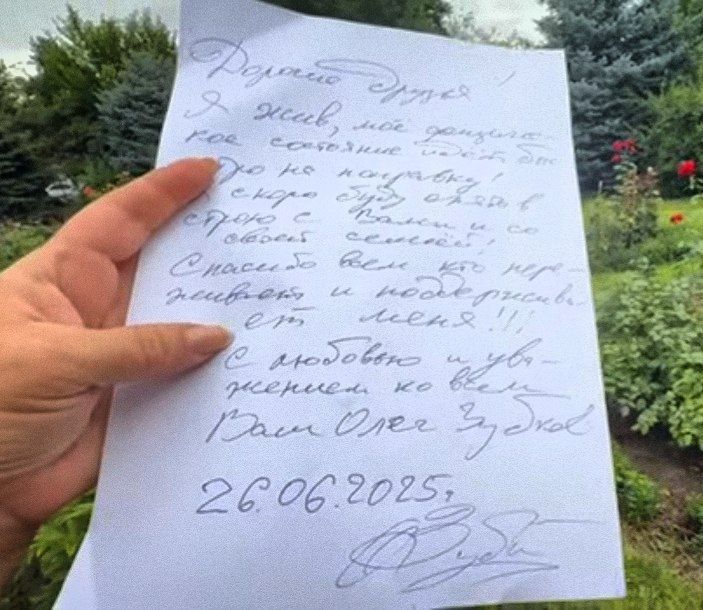 Дорогие друзья!
Я жив, моё
кое состояние идёт быс
тро на поправку!
скоро буду опять в
строю с Вами и со
своей семьёй!
Спасибо всем кто пере-
живает и поддержива
ет меня!!!
С любовью и ува-
жением ко всем
Ваш Олег Зубков
26.06.2025г